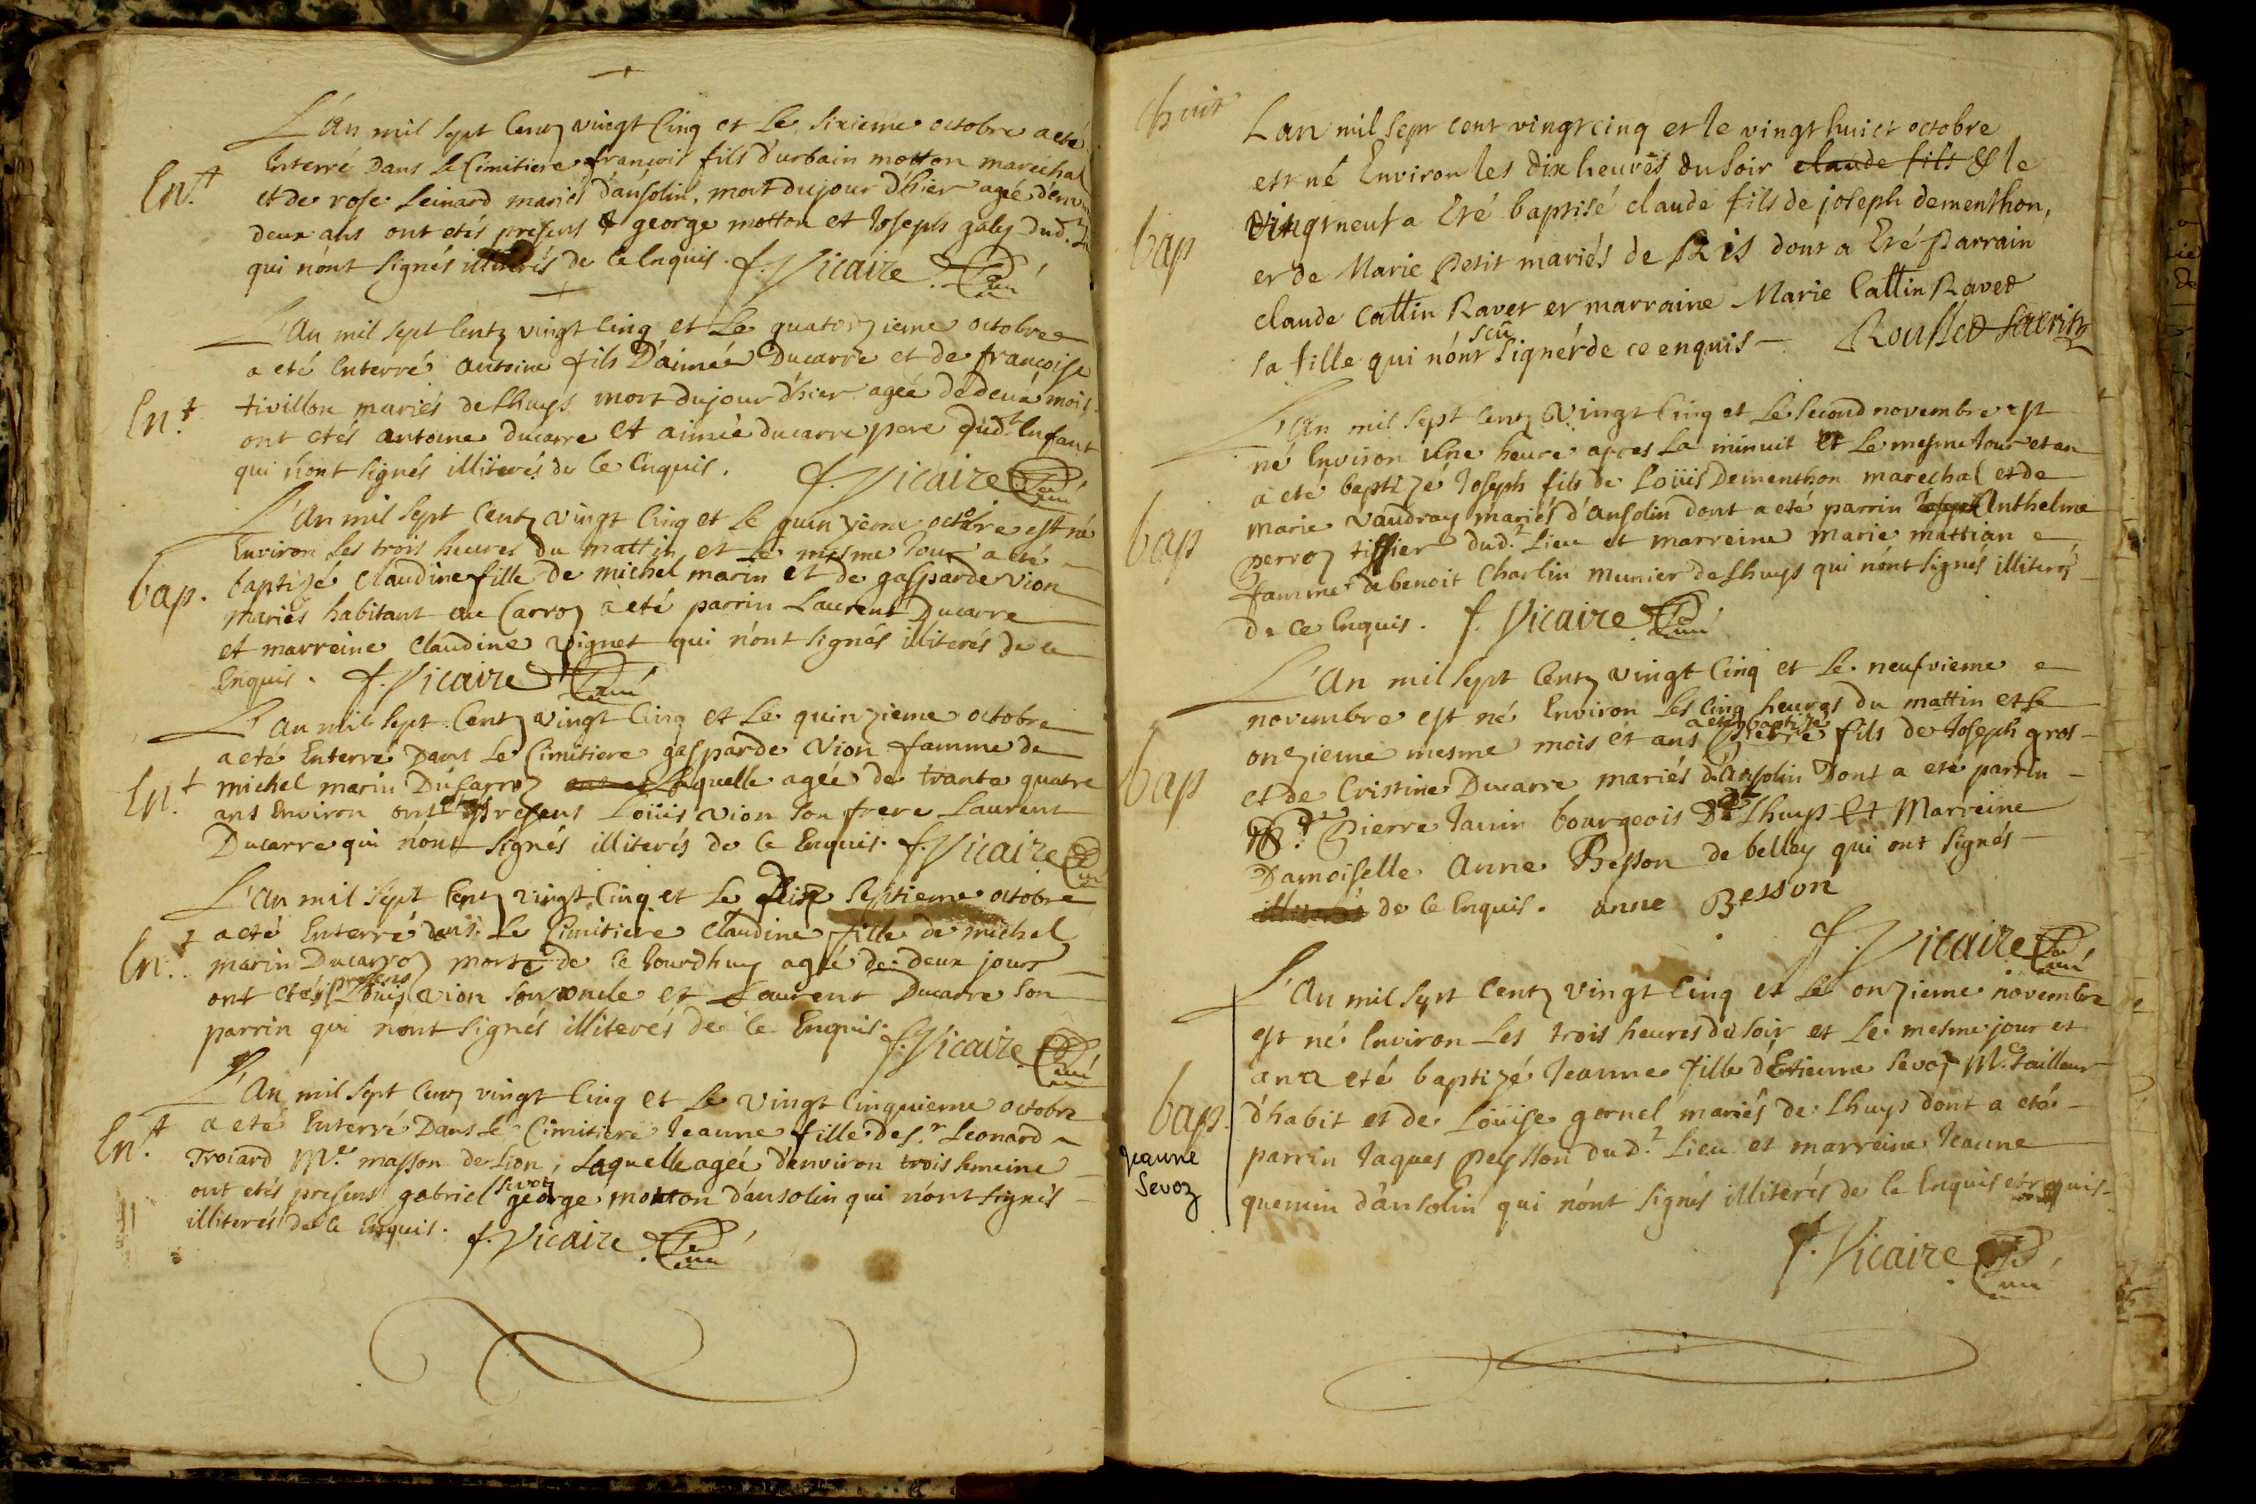 L'an mil sept Centz vingt Cinq et Le Sixieme octobre a eté
Ent
Enterré Dans Le Cimitiere françois fils d'urbain motton marechal
et de rose Leinard mariés d'ansolin, mort du jour d'hier agée d'env
deux ans ont etés presens george motton et Joseph galey dud.
qui n'ont signés illiterés de Ce Enquis. f. Vicaire Curé
L'an mil sept Centz vingt Cinq et Le quatorzieme octobre
a eté Enterré antoine fils D'aimée Ducarre et de françoise
Ent
tivillon mariés de Lhuys mort du jour d'hier agée de deux mois
ont etés antoine ducarre et aimée ducarre pere dud.t Enfant
qui n'ont signés illiterés de Ce Enquis. f. Vicaire Curé
L'an mil sept Centz vingt Cinq et Le quinzieme octobre est né
Environ Les trois heures du mattin et Le mesme Jour a eté
bap. baptizé Claudine fille de michel marin et de gasparde vion
mariés habitant au Carroz a eté parrin Laurent Ducarre
et marreine Claudine vignet qui n'ont signés illiterés de ce
Enquis. f. Vicaire Curé
L'an mil sept Centz vingt Cinq et Le quinzieme octobre
a eté Enterré Dans Le Cimitiere gasparde vion famme de
Ent michel marin Du Carroz Laquelle agée de trante quatre
ans Environ ont etes presens Loüis vion son frere Laurent
Ducarre qui n'ont signés illiterés de Ce Enquis. f. Vicaire Curé
L'an mil sept Centz vingt Cinq et Le Dix septieme octobre
Ent a eté Enterré dans Le Cimitiere Claudine fille de michel
marin Ducarroz morte de Ce Jourdhuy agée de deux jours
ont etés presens Loüis vion son oncle et Laurent Ducarre son
parrin qui n'ont signés illiterés de Ce Enquis. f. Vicaire Curé
L'an mil sept Centz vingt Cinq et Le vingt Cinquieme octobre
Ent a eté Enterré Dans Le Cimitiere Jeanne fille de s.r Leonard
Troiard M.e masson de Lion, Laquelle agée d'environ trois semeine
ont etés presens gabriel sevoz george motton d'ansolin qui n'ont signés
illiterés de Ce Enquis. f. Vicaire Curé
huit
Lan mil sept cent vingt cinq et le vingt huict octobre
est né Environ les dix heures du soir claude fils & le
bap vingt neuf a Eté baptisé claude fils de joseph dementhon,
et de Marie Petit mariés de Ris dont a Eté Parrain
claude Cattin Ravet et marraine Marie Cattin Ravet
sa fille qui n'ont sçu signer de ce enquis Rousset
L'an mil sept Centz Vingt Cinq et Le second novembre est
né Environ Une heure apres La minuit et Le mesme Jour et an
a eté baptizé Joseph fils de Loüis Dementhon marechal et de
bap marie vaudray mariés d'ansolin dont a eté parrin Joseph Anthelme
perroz tissier dud.t Lieu et marreine marie mattian
famme de benoit Charlin munier de Lhuys qui n'ont signés illiterés
de Ce Enquis. f. Vicaire Curé
L'an mil sept Centz vingt Cinq et Le neufvieme
novembre est né Environ Les Cinq heures du mattin et Le
onzieme mesme mois et ans a eté baptizé Pierre fils de Joseph gros
bap et de Cristine Ducarre mariés d'Ansolin Dont a eté parrin
Pierre Janin bourgeois De Lhuys Et Marreine
Damoiselle Anne Besson de belley qui ont signés
illiterés de Ce Enquis. anne Besson
f. Vicaire Curé
L'an mil sept Centz vingt Cinq et Le onzieme novembre
est né Environ Les trois heures du soir et Le mesme jour et
an a eté baptizé Jeanne fille d'Etienne Sevoz M.e tailleur
bap. d'habit et de Loüise gornel mariés de Lhuys dont a eté
Jeanne Sevoz
parrin Jaques Peysson dud.t Lieu et marreine Jeanne
quemin d'ansolin qui n'ont signés illiterés de Ce Enquis et requis
f. Vicaire Curé